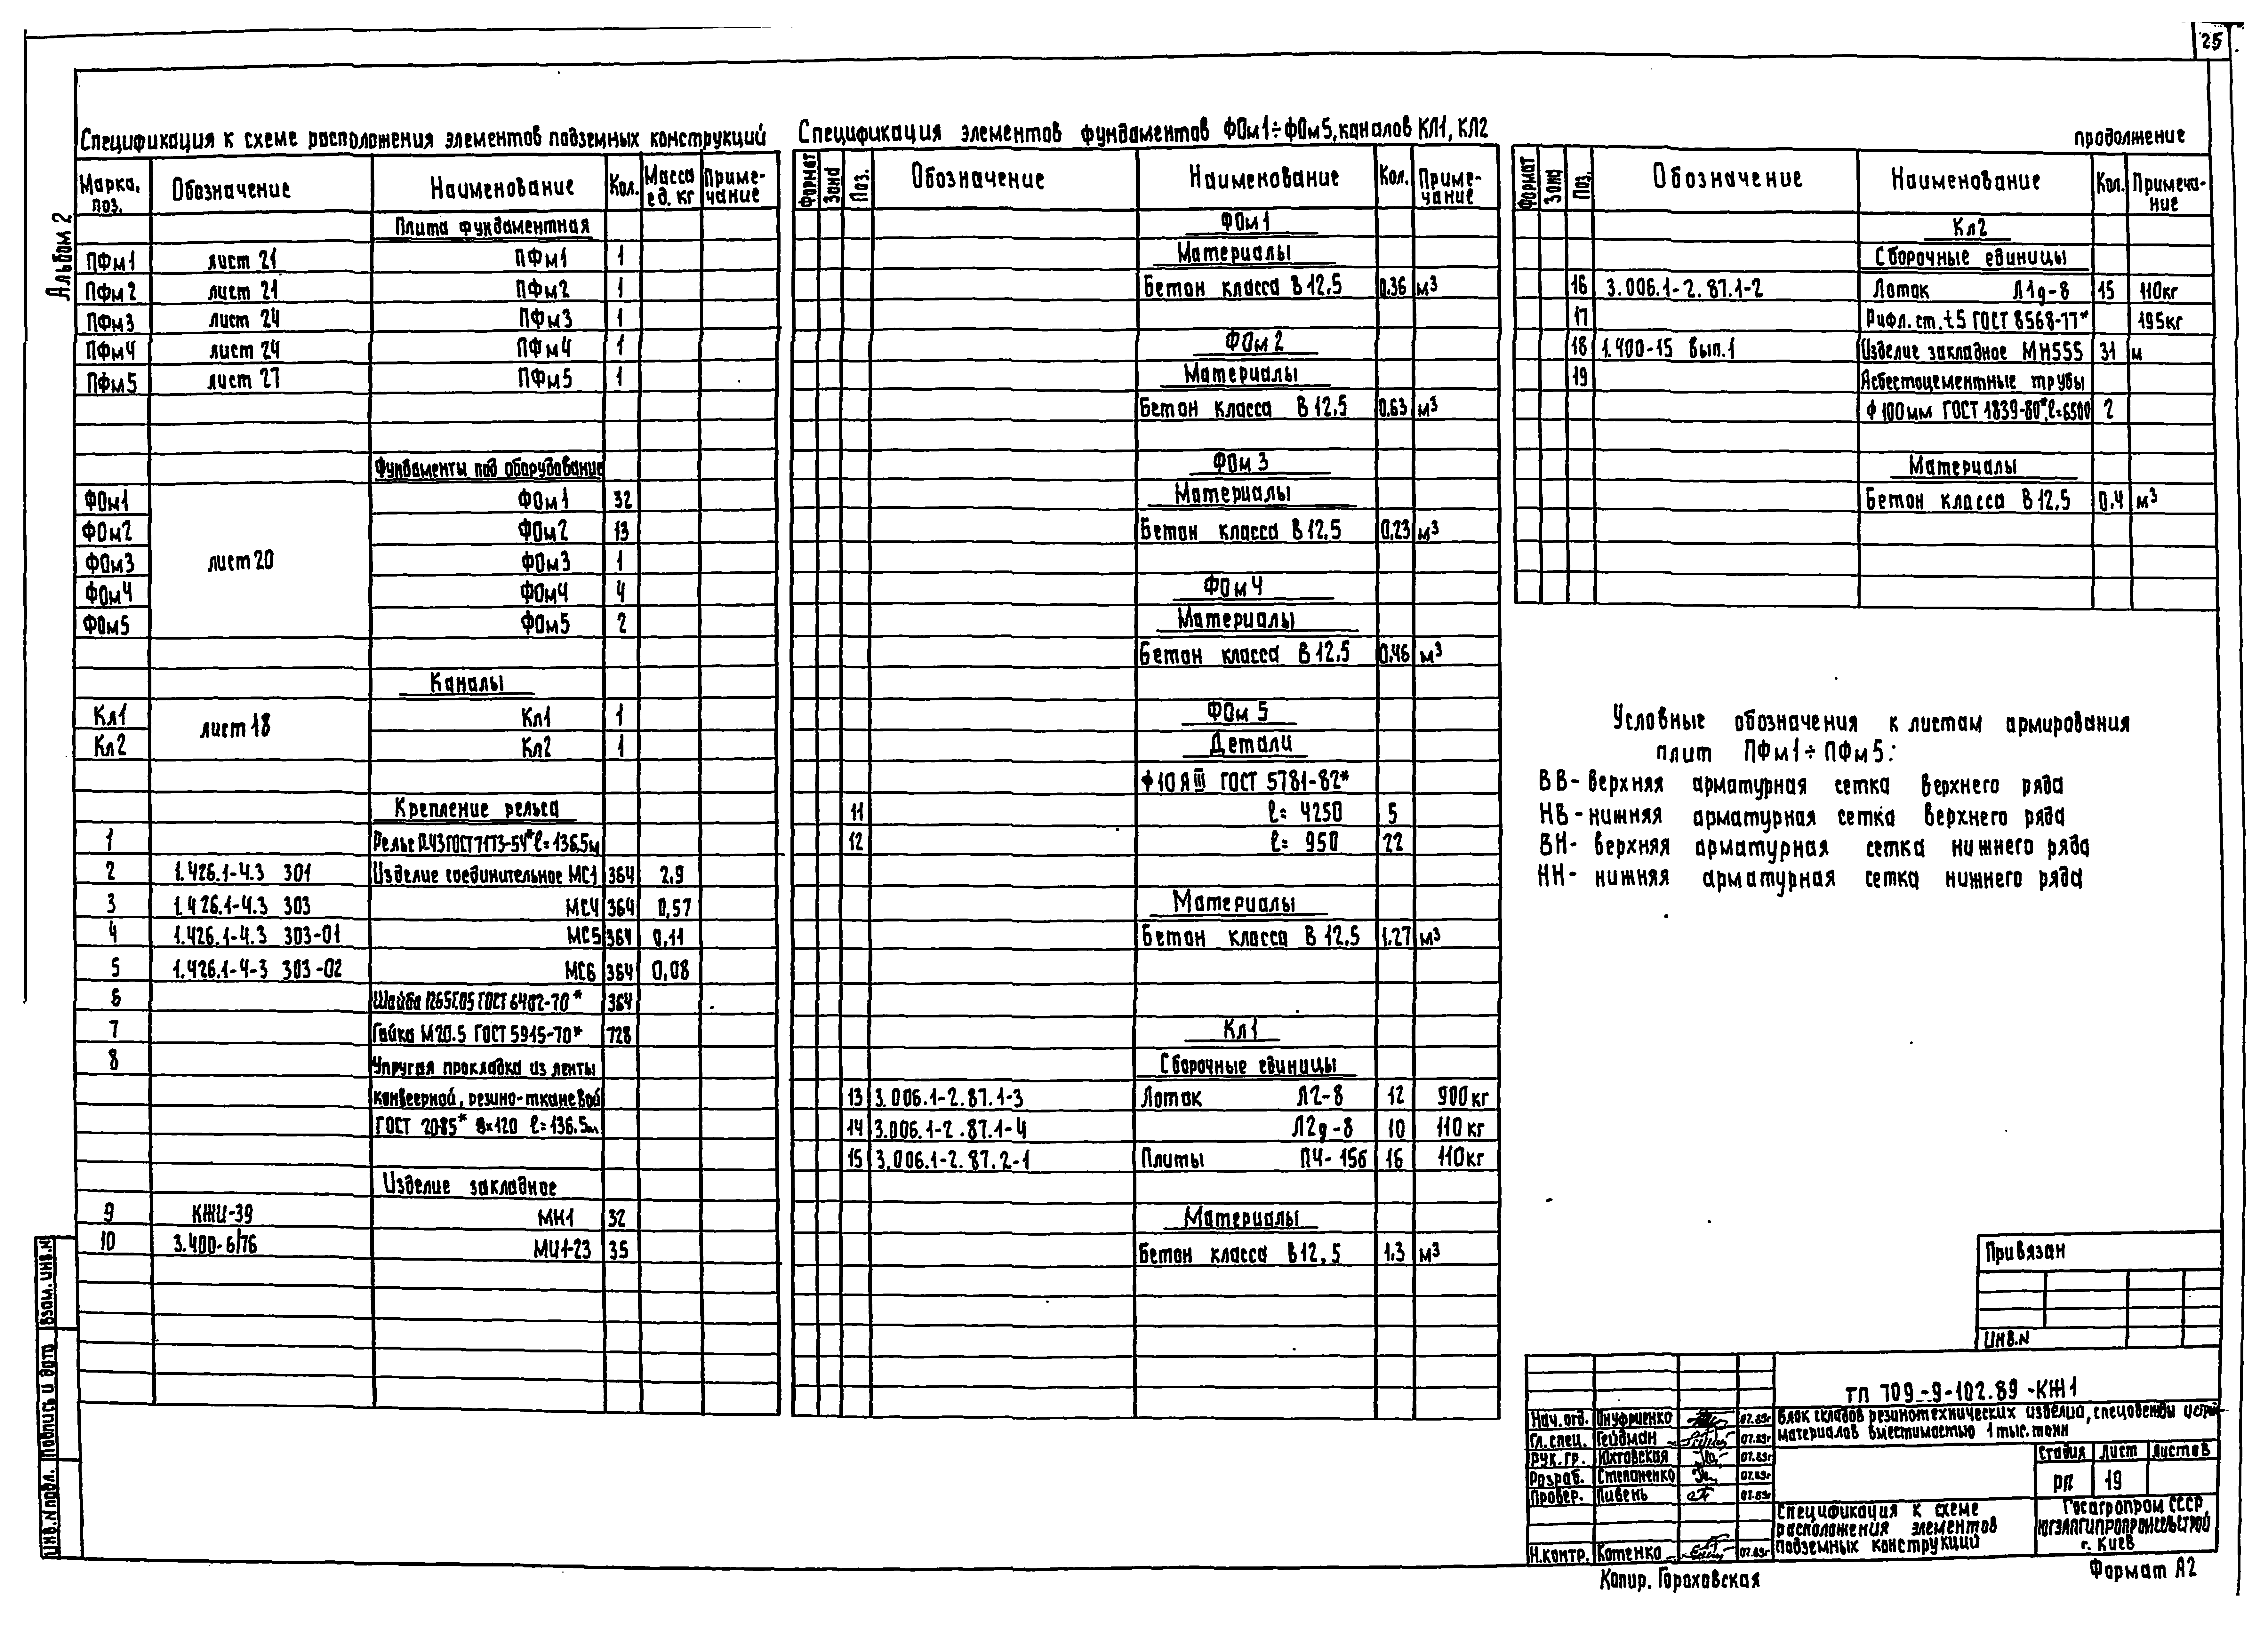 25
Альбом 2
Спецификация к схеме расположения элементов подземных конструкций
Марка, поз. Обозначение Наименование Кол. Масса ед. кг Приме-чание
Плита фундаментная
ПФм1 лист 21 ПФм1 1
ПФм2 лист 21 ПФм2 1
ПФм3 лист 24 ПФм3 1
ПФм4 лист 24 ПФм4 1
ПФм5 лист 27 ПФм5 1
Фундаменты под оборудование
ФОм1 ФОм1 32
ФОм2 ФОм2 13
ФОм3 лист 20 ФОм3 1
ФОм4 ФОм4 4
ФОм5 ФОм5 2
Каналы
Кл1 лист 18 Кл1 1
Кл2 Кл2 1
Крепление рельса
1 Рельс Р-43 ГОСТ 7173-54* ℓ=136,5м
2 1.426.1-4.3 301 Изделие соединительное МС1 364 2,9
3 1.426.1-4.3 303 МС4 364 0,57
4 1.426.1-4.3 303-01 МС5 364 0,11
5 1.426.1-4-3 303-02 МС6 364 0,08
6 Шайба ГОСТ 6402-70* 364
7 Гайка М20.5 ГОСТ 5915-70* 728
8 Упругая прокладка из ленты
конвеерной, резино-тканевой
ГОСТ 20-85* 8×120 ℓ=136.5м
Изделие закладное
9 КЖИ-39 МН1 32
10 3.400-6/76 МИ1-23 35
Спецификация элементов фундаментов ФОм1÷ФОм5, каналов КЛ1, КЛ2
Формат Зона Поз. Обозначение Наименование Кол. Приме-чание
ФОм1
Материалы
Бетон класса В 12.5 0.36 м³
ФОм 2
Материалы
Бетон класса В 12.5 0.63 м³
ФОм 3
Материалы
Бетон класса В 12.5 0.23 м³
ФОм 4
Материалы
Бетон класса В 12.5 0.46 м³
ФОм 5
Детали
Ф10 А III ГОСТ 5781-82*
11 ℓ= 4250 5
12 ℓ= 950 22
Материалы
Бетон класса В 12.5 1.27 м³
Кл1
Сборочные единицы
13 3.006.1-2.87.1-3 Лоток Л2-8 12 900 кг
14 3.006.1-2.87.1-4 Л2д-8 10 110 кг
15 3.006.1-2.87.2-1 Плиты П4-15б 16 110кг
Материалы
Бетон класса В12,5 1.3 м³
продолжение
Формат Зона Поз. Обозначение Наименование Кол. Примеча-ние
Кл2
Сборочные единицы
16 3.006.1-2.87.1-2 Лоток Л1д-8 15 110кг
17 Рифл. ст. t.5 ГОСТ 8568-77* 195кг
18 1.400-15 вып.1 Изделие закладное МН555 31 м
19 Асбестоцементные трубы
ф 100мм ГОСТ 1839-80*, ℓ=6500 2
Материалы
Бетон класса В 12.5 0.4 м³
Условные обозначения к листам армирования
плит ПФм1÷ПФм5:
ВВ- верхняя арматурная сетка верхнего ряда
НВ- нижняя арматурная сетка верхнего ряда
ВН- верхняя арматурная сетка нижнего ряда
НН- нижняя арматурная сетка нижнего ряда
Привязан
Инв.N
ТП 709-9-102.89 -КЖ1
Нач. отд. Онуфриенко 07.89г
Гл. спец. Гейдман 07.89г
Рук. гр. Юхтовская 07.89г
Разраб. Степаненко 07.89г
Провер. Ливень 07.89г
Н.контр. Котенко 07.89г
Блок складов резинотехнических изделий, спецодежды
материалов вместимостью 1 тыс. тонн
Стадия Лист Листов
РП 19
Спецификация к схеме
расположения элементов
подземных конструкций
Госагропром СССР
г. Киев
Копир. Гороховская
Формат А2
Взам. инв. N
Подпись и дата
Инв. N подл.